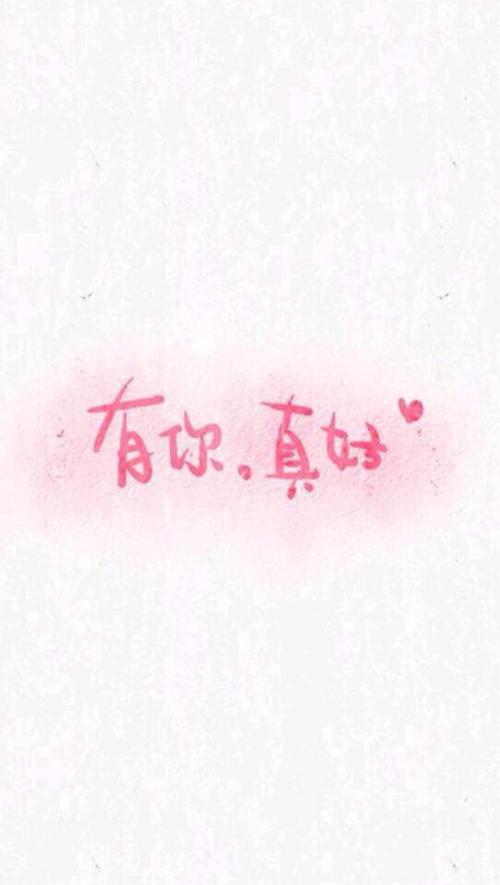 有你。真好